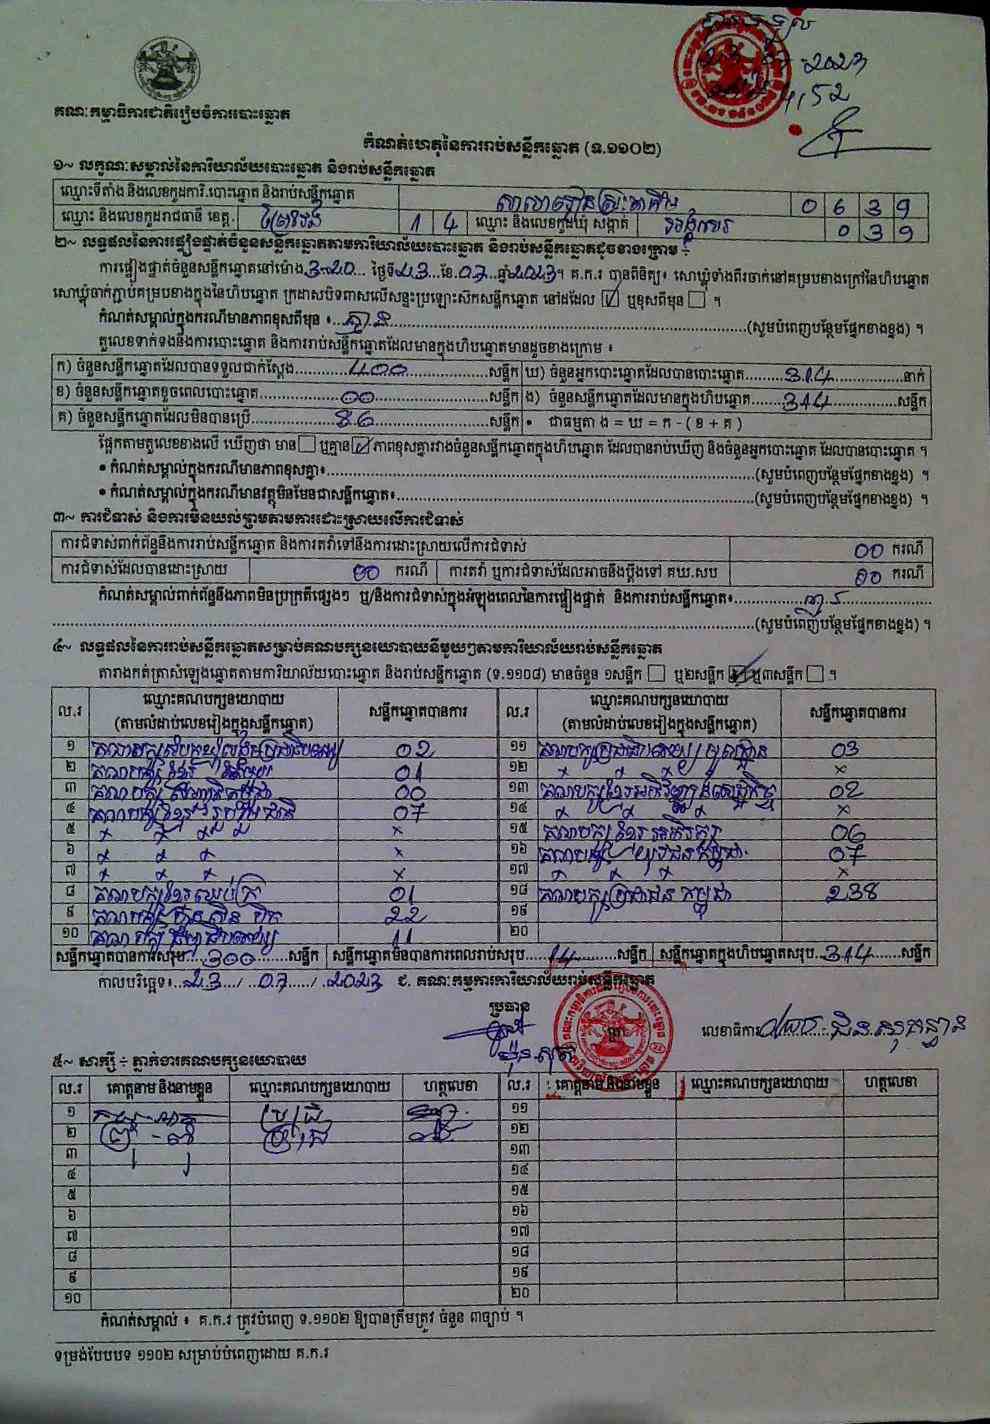 គណៈកម្មាធិការជាតិរៀបចំការបោះឆ្នោត
2023
4,52
កំណត់ហេតុនៃការរាប់សន្លឹកឆ្នោត (ទ.១១០២)
១~ លក្ខណៈសម្គាល់នៃការិយាល័យបោះឆ្នោត និងរាប់សន្លឹកឆ្នោត
ឈ្មោះទីតាំង និងលេខកូដការិ.បោះឆ្នោត និងរាប់សន្លឹកឆ្នោត 0 6 3 9
ឈ្មោះ និងលេខកូដរាជធានី ខេត្ត. ព្រៃវែង 1 4 ឈ្មោះ និងលេខកូដឃុំ សង្កាត់ 0 3 9
២~ លទ្ធផលនៃការផ្ទៀងផ្ទាត់ចំនួនសន្លឹកឆ្នោតតាមការិយាល័យបោះឆ្នោត និងរាប់សន្លឹកឆ្នោតដូចខាងក្រោម ÷
ការផ្ទៀងផ្ទាត់ចំនួនសន្លឹកឆ្នោតនៅម៉ោង 3-20 ថ្ងៃទី 23 ខែ 07 ឆ្នាំ 2023។ គ.ក.រ បានពិនិត្យ៖ សោឃ្លុំទាំងពីរចាក់នៅគម្របខាងក្រៅនៃហិបឆ្នោត
សោឃ្លុំចាក់ភ្ជាប់គម្របខាងក្នុងនៃហិបឆ្នោត ក្រដាសបិទពាសលើសន្ទះប្រឡោះស៊កសន្លឹកឆ្នោត នៅដដែល ☑ ឬខុសពីមុន ☐ ។
កំណត់សម្គាល់ក្នុងករណីមានភាពខុសពីមុន ៖ គ្មាន (សូមបំពេញបន្ថែមផ្នែកខាងខ្នង) ។
តួលេខទាក់ទងនឹងការបោះឆ្នោត និងការរាប់សន្លឹកឆ្នោតដែលមានក្នុងហិបឆ្នោតមានដូចខាងក្រោម ៖
ក) ចំនួនសន្លឹកឆ្នោតដែលបានទទួលជាក់ស្តែង 400 សន្លឹក ឃ) ចំនួនអ្នកបោះឆ្នោតដែលបានបោះឆ្នោត 314 នាក់
ខ) ចំនួនសន្លឹកឆ្នោតខូចពេលបោះឆ្នោត 00 សន្លឹក ង) ចំនួនសន្លឹកឆ្នោតដែលមានក្នុងហិបឆ្នោត 314 សន្លឹក
គ) ចំនួនសន្លឹកឆ្នោតដែលមិនបានប្រើ 86 សន្លឹក • ជាធម្មតា ង = ឃ = ក - ( ខ + គ )
ផ្អែកតាមតួលេខខាងលើ ឃើញថា មាន ☐ ឬគ្មាន ☑ ភាពខុសគ្នារវាងចំនួនសន្លឹកឆ្នោតក្នុងហិបឆ្នោត ដែលបានរាប់ឃើញ និងចំនួនអ្នកបោះឆ្នោត ដែលបានបោះឆ្នោត ។
• កំណត់សម្គាល់ក្នុងករណីមានភាពខុសគ្នា៖ (សូមបំពេញបន្ថែមផ្នែកខាងខ្នង) ។
• កំណត់សម្គាល់ក្នុងករណីមានវត្ថុមិនមែនជាសន្លឹកឆ្នោត៖ (សូមបំពេញបន្ថែមផ្នែកខាងខ្នង) ។
៣~ ការជំទាស់ និងការមិនយល់ព្រមតាមការដោះស្រាយលើការជំទាស់
ការជំទាស់ពាក់ព័ន្ធនឹងការរាប់សន្លឹកឆ្នោត និងការតវ៉ាទៅនឹងការដោះស្រាយលើការជំទាស់ 00 ករណី
ការជំទាស់ដែលបានដោះស្រាយ 00 ករណី ការតវ៉ា ឬការជំទាស់ដែលអាចនឹងប្តឹងទៅ គឃ.សប 00 ករណី
កំណត់សម្គាល់ពាក់ព័ន្ធនឹងភាពមិនប្រក្រតីផ្សេងៗ ឬ/និងការជំទាស់ក្នុងអំឡុងពេលនៃការផ្ទៀងផ្ទាត់ និងការរាប់សន្លឹកឆ្នោត៖
(សូមបំពេញបន្ថែមផ្នែកខាងខ្នង) ។
៤~ លទ្ធផលនៃការរាប់សន្លឹកឆ្នោតសម្រាប់គណបក្សនយោបាយនីមួយៗតាមការិយាល័យរាប់សន្លឹកឆ្នោត
តារាងកត់ត្រាសំឡេងឆ្នោតតាមការិយាល័យបោះឆ្នោត និងរាប់សន្លឹកឆ្នោត (ទ.១១០៨) មានចំនួន ១សន្លឹក ☐ ឬ២សន្លឹក ☑ ឬ៣សន្លឹក ☐ ។
ល.រ ឈ្មោះគណបក្សនយោបាយ (តាមលំដាប់លេខរៀងក្នុងសន្លឹកឆ្នោត) សន្លឹកឆ្នោតបានការ ល.រ ឈ្មោះគណបក្សនយោបាយ (តាមលំដាប់លេខរៀងក្នុងសន្លឹកឆ្នោត) សន្លឹកឆ្នោតបានការ
១ 02 ១១ 03
២ គណបក្ស ខ្មែរ 01 ១២ x x x x
៣ គណបក្ស 00 ១៣ 02
៤ គណបក្សខ្មែររួបរួមជាតិ 07 ១៤ x x x x
៥ x x x x ១៥ គណបក្ស ខ្មែរ 06
៦ x x x x ១៦ គណបក្ស យុវជនកម្ពុជា 07
៧ x x x x ១៧ x x x x
៨ គណបក្សខ្មែរឈប់ក្រ 01 ១៨ គណបក្សប្រជាជនកម្ពុជា 238
៩ គណបក្សហ៊្វុនស៊ិនប៉ិច 22 ១៩
១០ 11 ២០
សន្លឹកឆ្នោតបានការសរុប 300 សន្លឹក សន្លឹកឆ្នោតមិនបានការពេលរាប់សរុប 14 សន្លឹក សន្លឹកឆ្នោតក្នុងហិបឆ្នោតសរុប 314 សន្លឹក
កាលបរិច្ឆេទ៖ 23 / 07 / 2023 ជ. គណៈកម្មការការិយាល័យរាប់សន្លឹកឆ្នោត
ប្រធាន
លេខាធិការ
៥~ សាក្សី ÷ ភ្នាក់ងារគណបក្សនយោបាយ
ល.រ គោត្តនាម និងនាមខ្លួន ឈ្មោះគណបក្សនយោបាយ ហត្ថលេខា ល.រ គោត្តនាម និងនាមខ្លួន ឈ្មោះគណបក្សនយោបាយ ហត្ថលេខា
១ ១១
២ ១២
៣ ១៣
៤ ១៤
៥ ១៥
៦ ១៦
៧ ១៧
៨ ១៨
៩ ១៩
១០ ២០
កំណត់សម្គាល់ ៖ គ.ក.រ ត្រូវបំពេញ ទ.១១០២ ឱ្យបានត្រឹមត្រូវ ចំនួន ៣ច្បាប់ ។
ទម្រង់បែបបទ ១១០២ សម្រាប់បំពេញដោយ គ.ក.រ